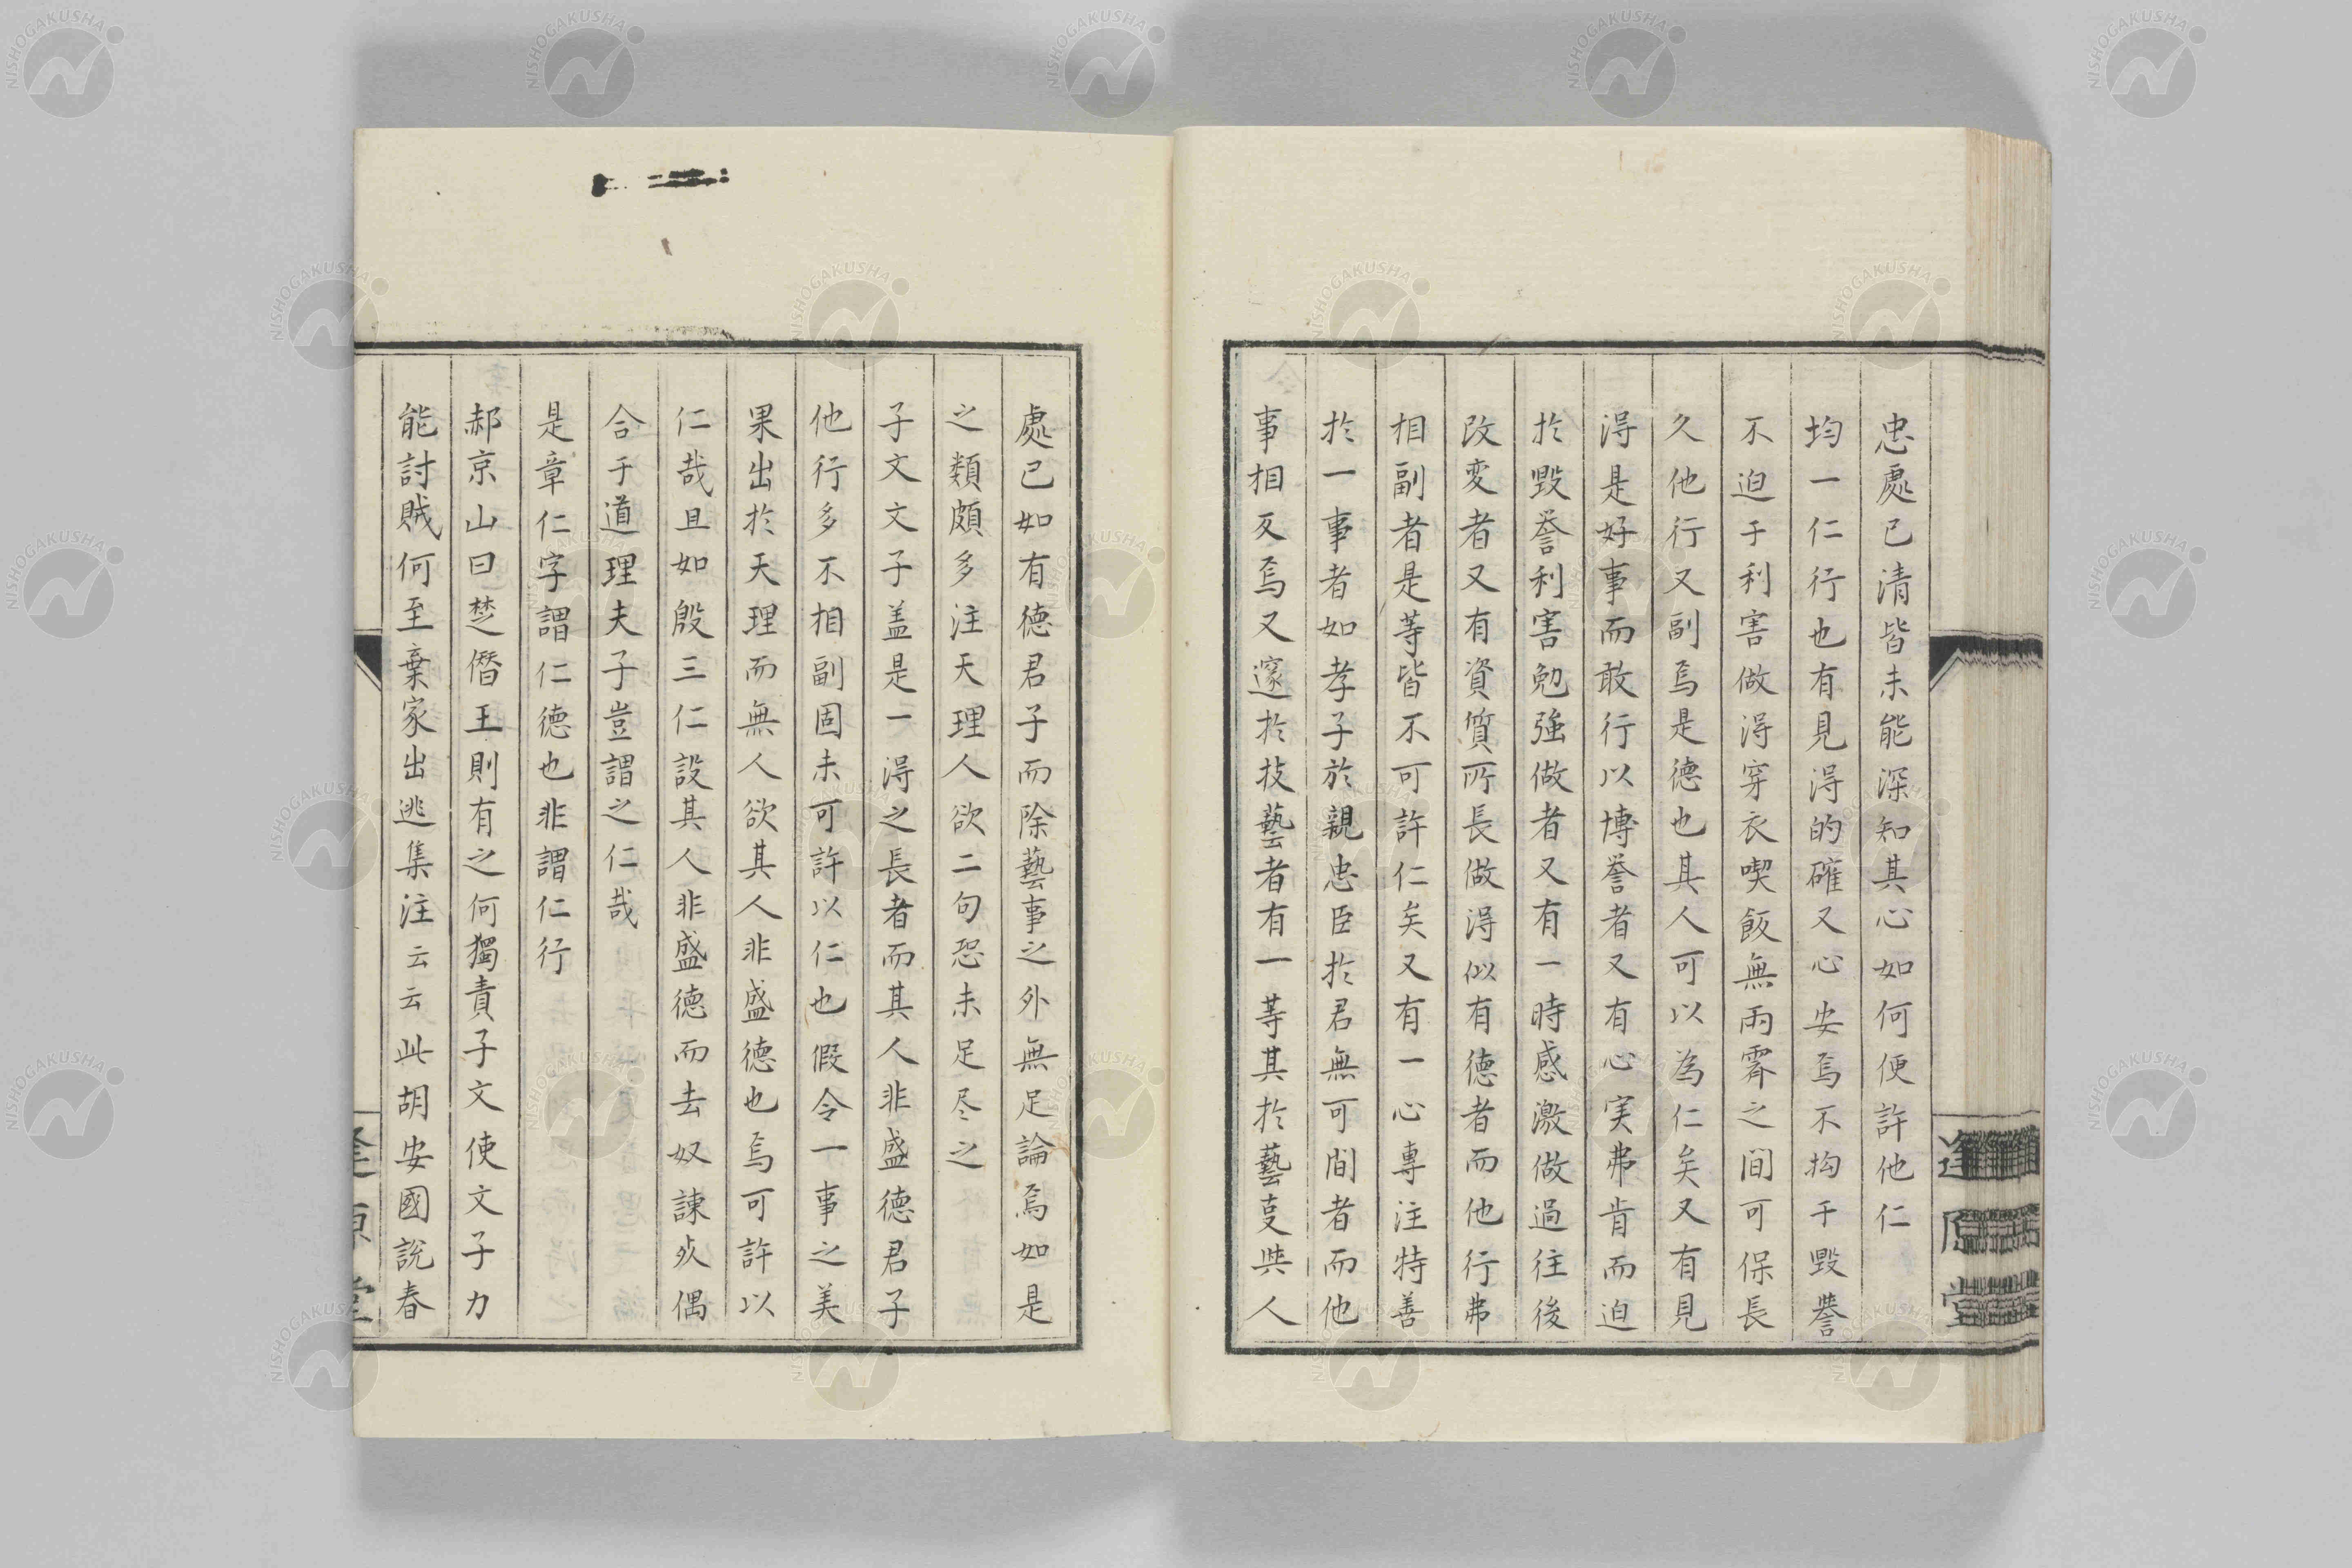 忠處已清皆未能深知其心如何便許他仁
均一仁行也有見得的確又心安焉不拘于毀誉
不迫于利害做得穿衣喫飯無雨霽之间可保長
久他行又副焉是德也其人可以為仁矣又有見
得是好事而敢行以博誉者又有心実弗肯而迫
於毀誉利害勉強做者又有一時感激做過往後
改変者又有資質所長做得似有德者而他行弗
相副者是等皆不可許仁矣又有一心專注特善
於一事者如孝子於親忠臣於君無可間者而他
事相反焉又邃於技藝者有一等其於藝叓與人
處已如有德君子而除藝事之外無足論焉如是
之類頗多注天理人欲二句恐未足尽之
子文文子盖是一得之長者而其人非盛德君子
他行多不相副固未可許以仁也假令一事之美
果出於天理而無人欲其人非盛德也焉可許以
仁哉且如殷三仁設其人非盛德而去奴諫死偶
合于道理夫子豈謂之仁哉
是章仁字謂仁德也非謂仁行
郝京山曰楚僭王則有之何獨責子文使文子力
能討賊何至棄家出逃集注云云此胡安國說春
逢原堂
NISHOGAKUSHA